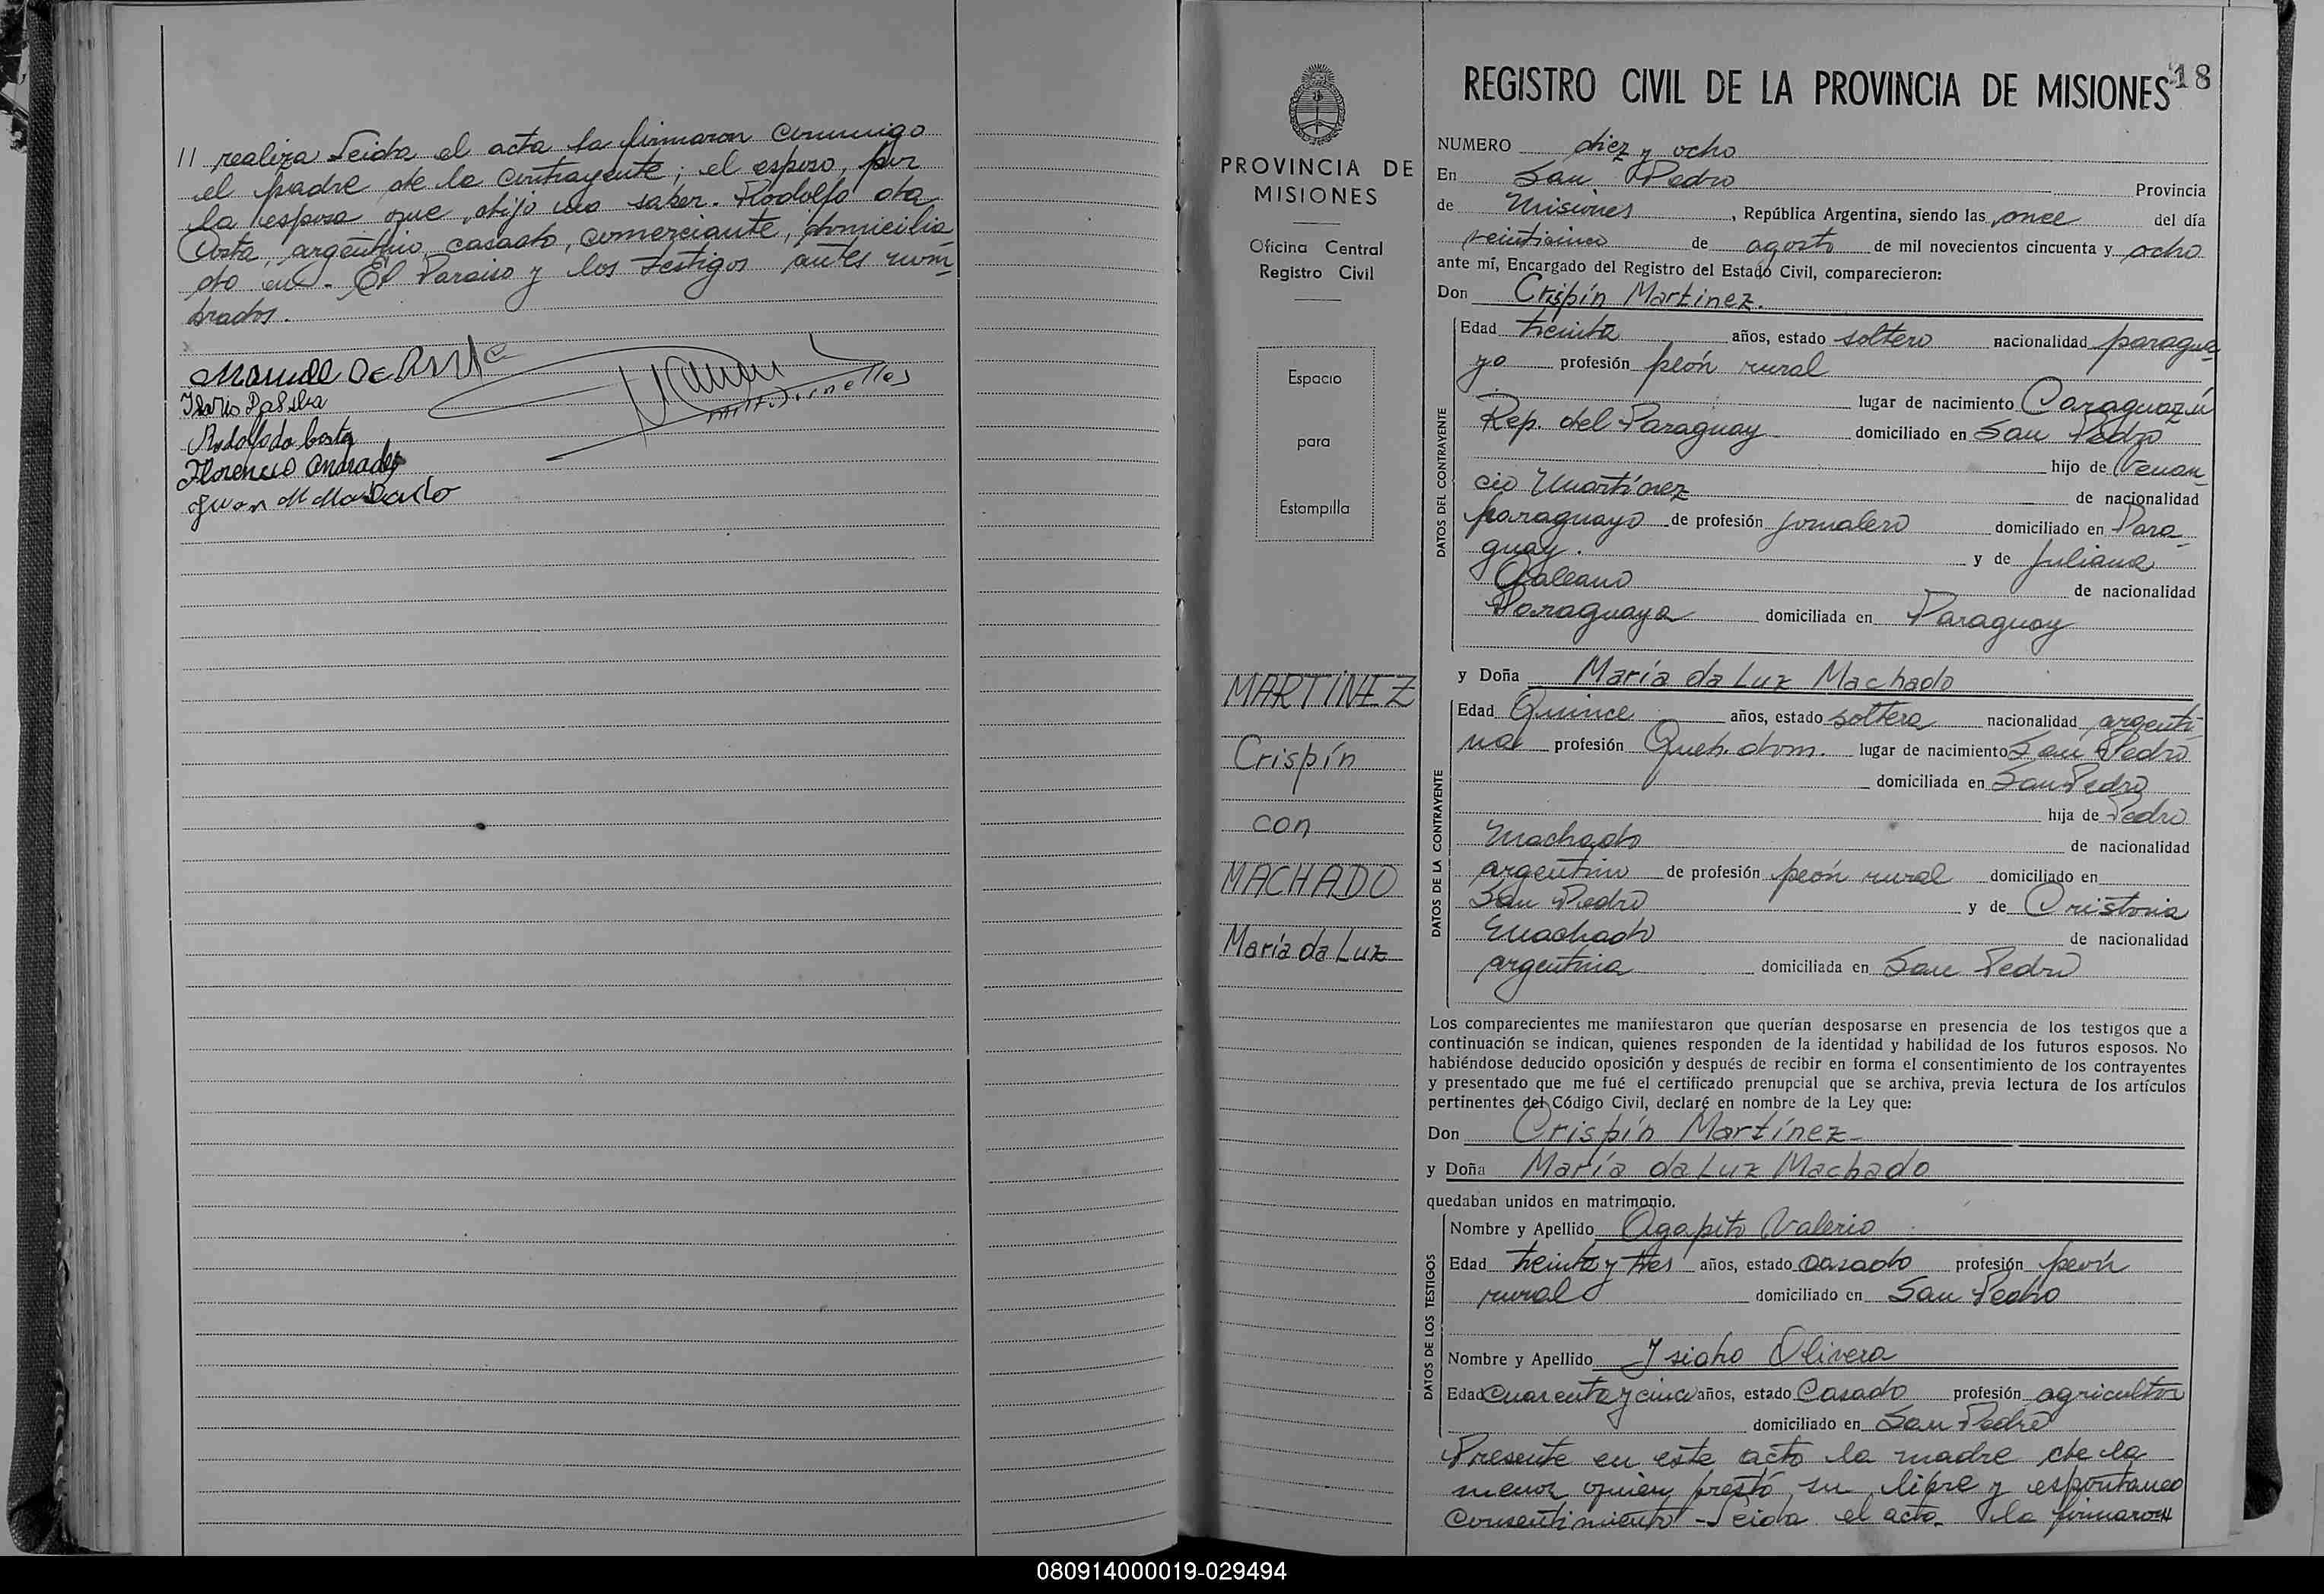 11 realiza Leida el acta la firmaron conmigo
el padre de la contrayente; el esposo, por
la esposa que dijo no saber. Rodolfo da
Costa, argentino, casado, comerciante, domicilia
do en - El Paraiso y los testigos antes nom-
brados.
Rodolfo da Costa
Florencio Andrades
Juan M Machado
PROVINCIA DE
MISIONES
Oficina Central
Registro Civil
Espacio
para
Estampilla
MARTINEZ
Crispín
con
MACHADO
María da Luz
REGISTRO CIVIL DE LA PROVINCIA DE MISIONES 18
NUMERO diez y ocho
En San Pedro Provincia
de Misiones, República Argentina, siendo las once del día
veinticinco de agosto de mil novecientos cincuenta y ocho
ante mí, Encargado del Registro del Estado Civil, comparecieron:
Don Crispín Martinez.
DATOS DEL CONTRAYENTE
Edad treinta años, estado soltero nacionalidad paragua
yo profesión peón rural
lugar de nacimiento Caraguazú
Rep. del Paraguay domiciliado en San Pedro
hijo de Venan-
cio Martínez de nacionalidad
paraguayo de profesión jornalero domiciliado en Para-
guay. y de Juliana
Galeano de nacionalidad
Paraguaya domiciliada en Paraguay
y Doña María da Luz Machado
DATOS DE LA CONTRAYENTE
Edad Quince años, estado soltera nacionalidad argenti-
na profesión Queh. dom. lugar de nacimiento San Pedro
domiciliada en San Pedro
hija de Pedro
Machado de nacionalidad
argentino de profesión peón rural domiciliado en
San Pedro y de Cristovia
Machado de nacionalidad
argentina domiciliada en San Pedro
Los comparecientes me manifestaron que querían desposarse en presencia de los testigos que a
continuación se indican, quienes responden de la identidad y habilidad de los futuros esposos. No
habiéndose deducido oposición y después de recibir en forma el consentimiento de los contrayentes
y presentado que me fué el certificado prenupcial que se archiva, previa lectura de los artículos
pertinentes del Código Civil, declaré en nombre de la Ley que:
Don Crispín Martínez
y Doña María da Luz Machado
quedaban unidos en matrimonio.
DATOS DE LOS TESTIGOS
Nombre y Apellido Agapito Valerio
Edad treinta y tres años, estado casado profesión peón
rural domiciliado en San Pedro
Nombre y Apellido Isidro Olivera
Edad cuarenta y cinco años, estado Casado profesión agricultor
domiciliado en San Pedro
Presente en este acto la madre de la
menor quien prestó su libre y espontaneo
Consentimiento - Leida el acta la firmaron
080914000019-029494